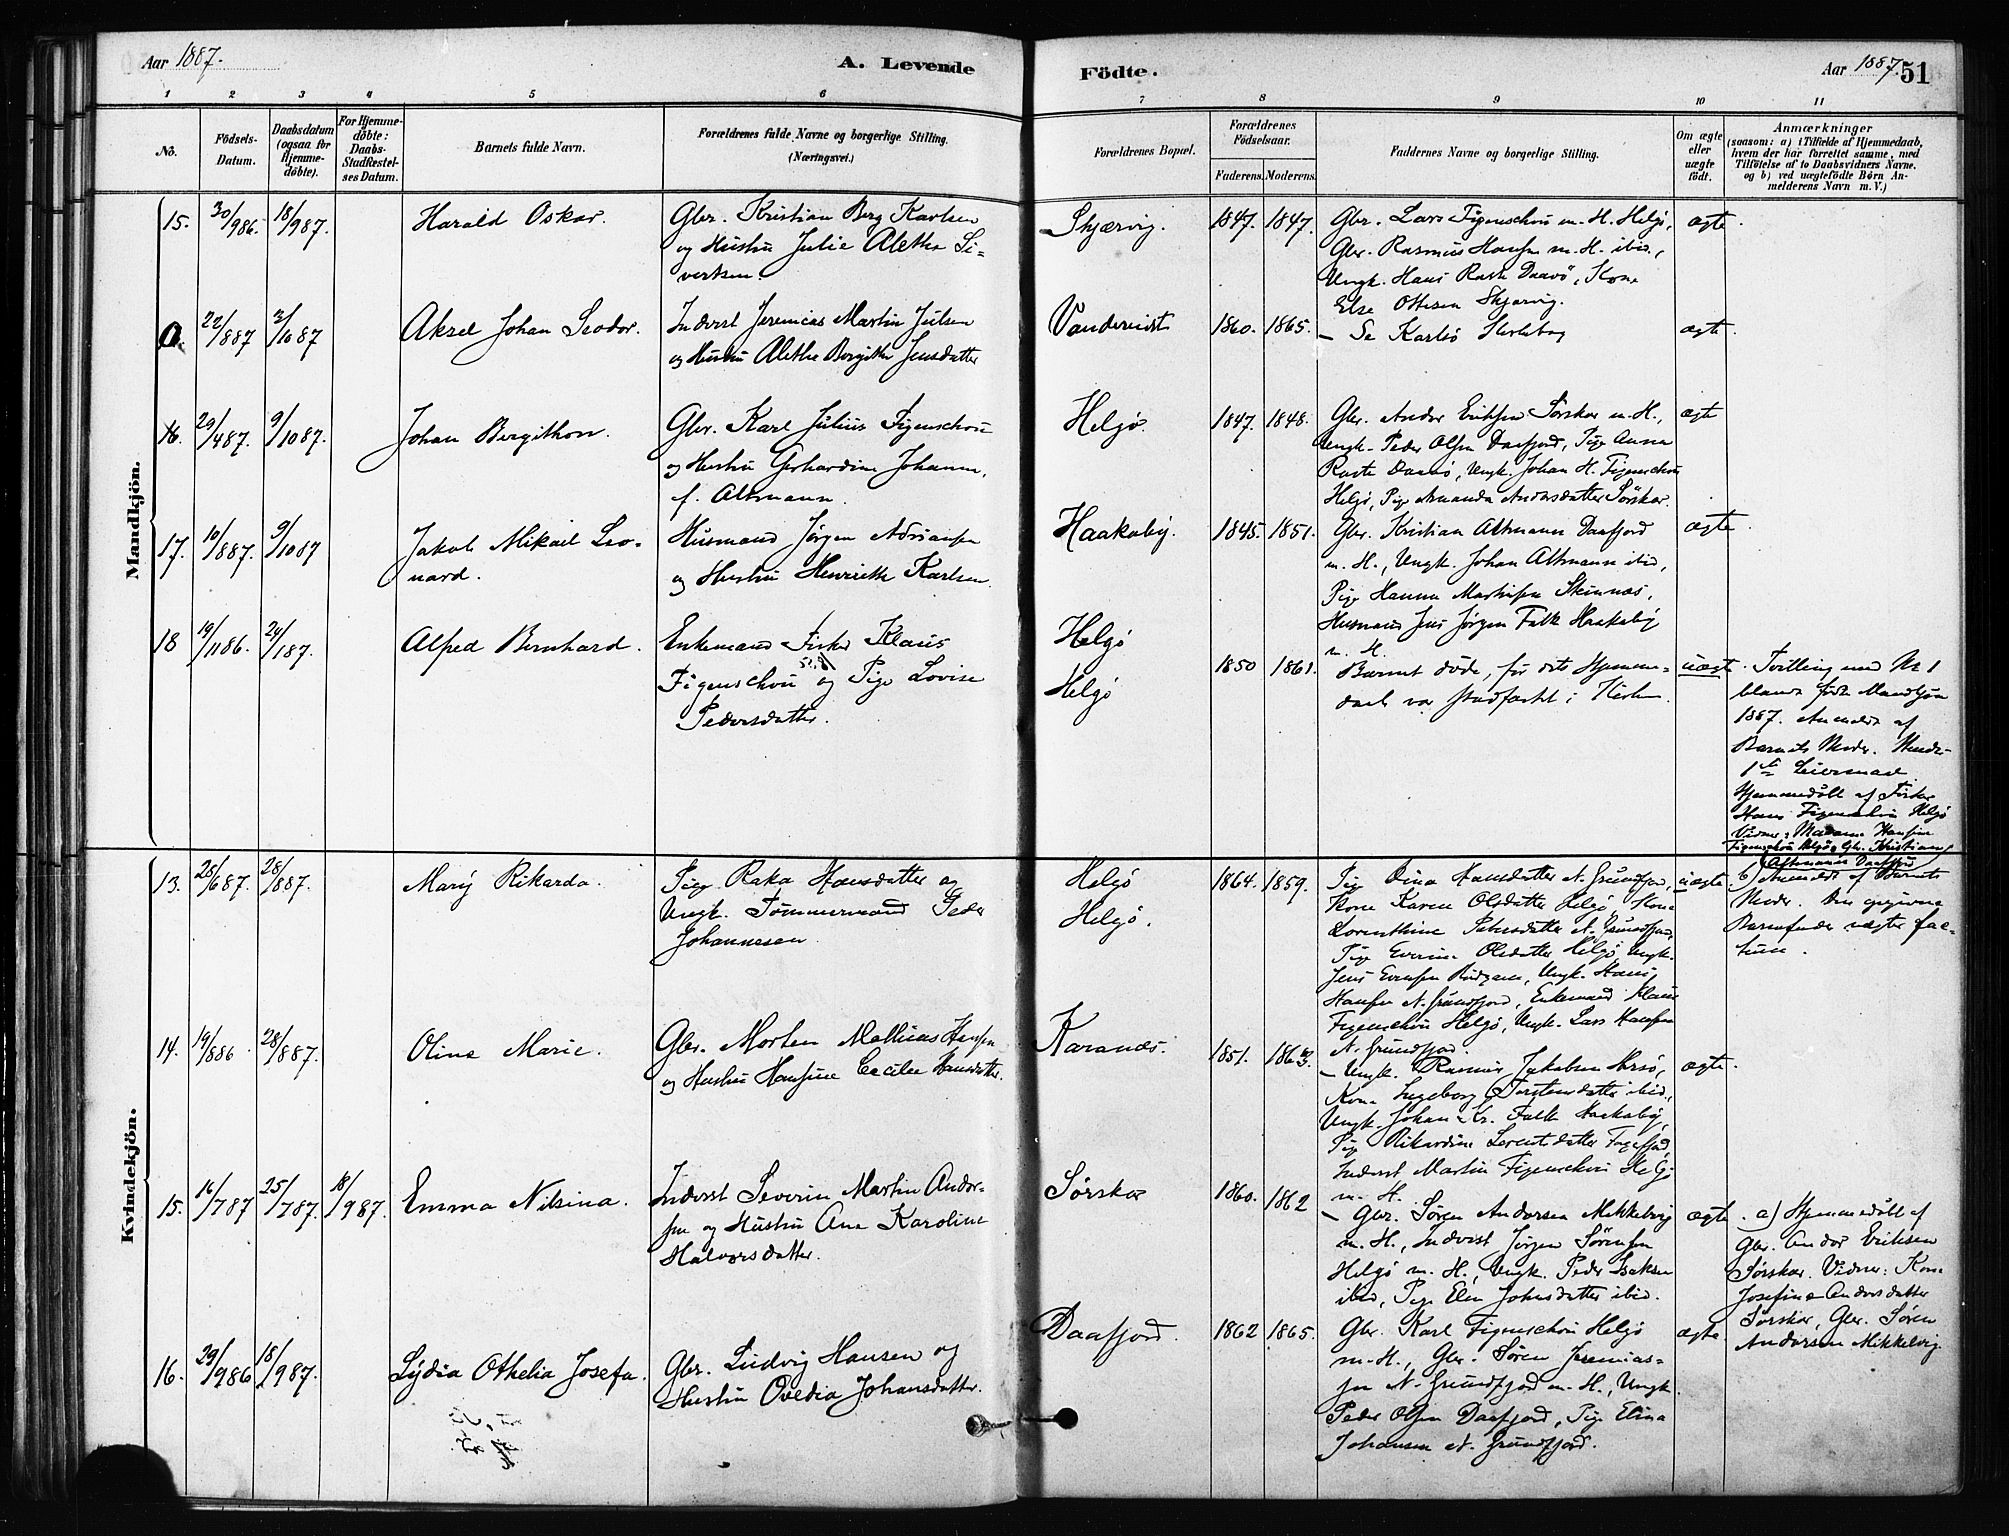 Aar 1887.
A. Levende
Födte.
Aar 1887.
51
1 2 3 4 5 6 7 8 9 10 11
No.
Födsels-
Datum.
Daabsdatum
(ogsaa for
Hjemme-
døbte).
For Hjemme-
døbte:
Daabs-
Stadfæstel-
ses Datum.
Barnets fulde Navn.
Forældrenes fulde Navne og borgerlige Stilling.
(Næringsvei.)
Forældrenes Bopæl.
Forældrenes
Födselsaar.
Faderens. Moderens.
Faddernes Navne og borgerlige Stilling.
Om ægte
eller
uægte
født.
Anmærkninger
(saasom: a) i Tilfælde af Hjemmedaab,
hvem der har forrettet samme, med
Tilföielse af to Daabsvidners Navne.
og b) ved uægtefödte Børn An-
melderens Navn m. V.)
Mandkjön.
15. 30/986. 18/987. Harald Oskar.
Gbr. Kristian Berg Karlsen
og Hustru Julie Alethe Si-
vertsen.
Skjærvig. 1847. 1847.
Gbr. Lars Figenschou m. H. Helgö,
Gbr. Rasmus Hansen m. H. ibid.,
Ungk. Hans Raste Daavö, Kone
Else Ottesen Skjærvig.
ægte.
0. 22/887 2/1087 Aksel Johan Seodor.
Inderst Jeremias Martin Julsen
og Hustru Alethe Bergitte Jensdatter
1860. 1865.
— Se Karlsö
ægte.
16. 29/487. 9/1087. Johan Bergithon.
Gbr. Karl Julius Figenschou
og Hustru Gerhardine Johanne,
f. Altmann.
Helgö. 1847. 1848.
Gbr. Andor Eriksen Sörskar m. H.,
Ungk. Peder Olsen Daafjord, Pige Anna
Raste Daavö, Ungk. Johan H. Figenschou
Helgö, Pige Amanda Andorsdatter Sörskar.
ægte
17. 10/887. 9/1087 Jakob Mikael Leo-
nard.
Husmand Jörgen Adriansen
og Hustru Henrikke Karlsen.
Haakaby. 1845. 1851.
Gbr. Kristian Altmann Daafjord
m. H., Ungk. Johan Altmann ibid,
Pige Hanna Martinsen Skinnes,
Husmand Jens Jörgen Falk Haakaby
m. H.
ægte.
18 19/1186. 24/187. Alfred Bernhard.
Enkemand Fisker Klaus
Figenschou og Pige Lovise
Pedersdatter.
Helgö
Helgö
1850 1861.
Barnet döde, för dets Hjemme-
daab var stadfæstet i Kirken.
uægte.
Tvilling med No 1
blandt födte Mandkjön
1887. Anmeldt af
Barnets Moder.
1ste Leiermaal
Hjemmedöbt af Fisker
Hans Figenschou Helgö
Vidner: Madame Hansine
Figenschou Helgö, Gbr. Kristian
Altmann Daafjord
Kvindekjön.
13. 28/687. 28/887. Marij Rikarda.
Pige Raka Hansdatter og
Ungk. Tömmermand Peder
Johannesen.
Helgö
Helgö.
1864. 1859.
Pige Dina Hansdatter N. Grundfjord,
Kone Karen Olsdatter Helgö, Kone
Dorenthine Petersdatter N. Grundfjord,
Pige Everine Olsdatter Helgö, Ungk.
Jens Evensen, Ungk. Hans
Hansen N. Grundfjord, Enkemand Klaus
Figenschou Helgö, Ungk. Lars Hansen
N. Grundfjord.
uægte
b) Anmeldt af Barnets
Moder. Den opgivne
Barnefader nægter fac-
tum.
14. 19/886. 28/887. Oline Marie.
Gbr. Morten Mathias Hansen
og Hustru Hansine Cecilie Hansdatter.
Karanæs. 1851. 1863.
— Ungk. Rasmus Jakobsen,
Kone Ingeborg Torstensdatter ibid.,
Ungk. Johan Kr. Falk Haakaby,
Pige Rikardine Lorentsdatter Fagefjord
Inderst Martin Figenschou Helgö
m. H.
ægte.
15. 16/787 25/787. 18/987. Emma Nilsina.
Inderst Severin Martin Andor-
sen og Hustru Ane Karoline
Halvorsdatter.
Sörskar 1860. 1862
— Gbr. Sören Andersen Mikkelvig
m. H., Inderst Jörgen Sörensen
Helgö m. H., Ungk. Peder Isaksen
ibid, Pige Elen Johnsdatter ibid.
ægte.
a) Hjemmedöbt af
Gbr. Andor Eriksen
Sörskar. Vidner: Kone
Josefine Andorsdatter
Sörskar, Gbr. Sören
Andersen Mikkelvig.
16. 29/986 18/987. Lydia Othelia Josefa.
Gbr. Ludvig Hansen og
Hustru Ovedia Johansdatter.
Daafjord. 1862 1865.
Gbr. Karl Figenschou Helgö
m. H., Gbr. Sören Jeremias-
sen N. Grundfjord m. H., Ungk.
Peder Olsen Daafjord, Pige Elina
Johansen N. Grundfjord.
ægte.